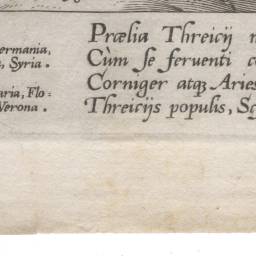 ermania,
, Syria.
aria, Flo=
Verona.
Prælia Threicij
Cùm se feruenti
Corniger atqȝ Aries
Threicijs populis,